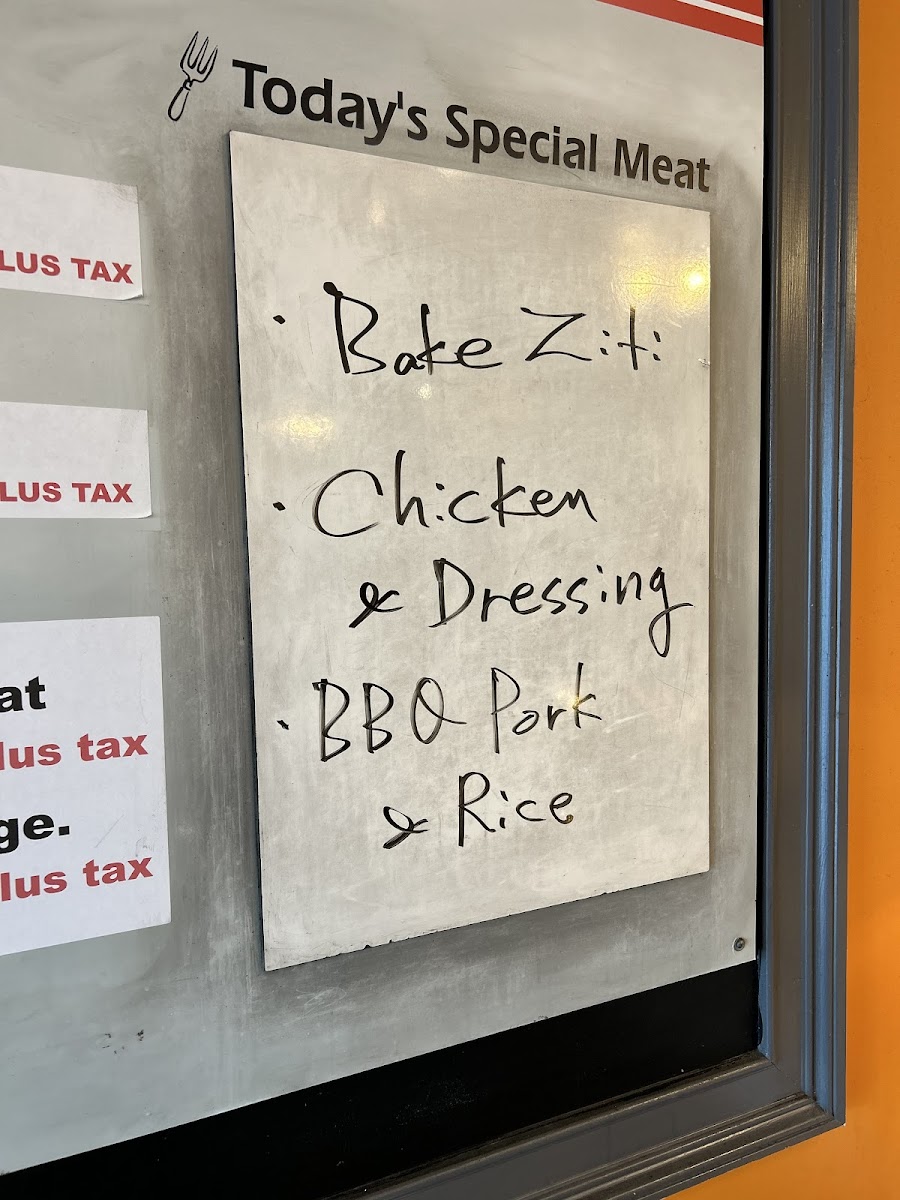 Today's Special Meat
LUS TAX
LUS TAX
at
lus tax
ge.
lus tax
· Bake Ziti
· Chicken
& Dressing
· BBQ Pork
& Rice